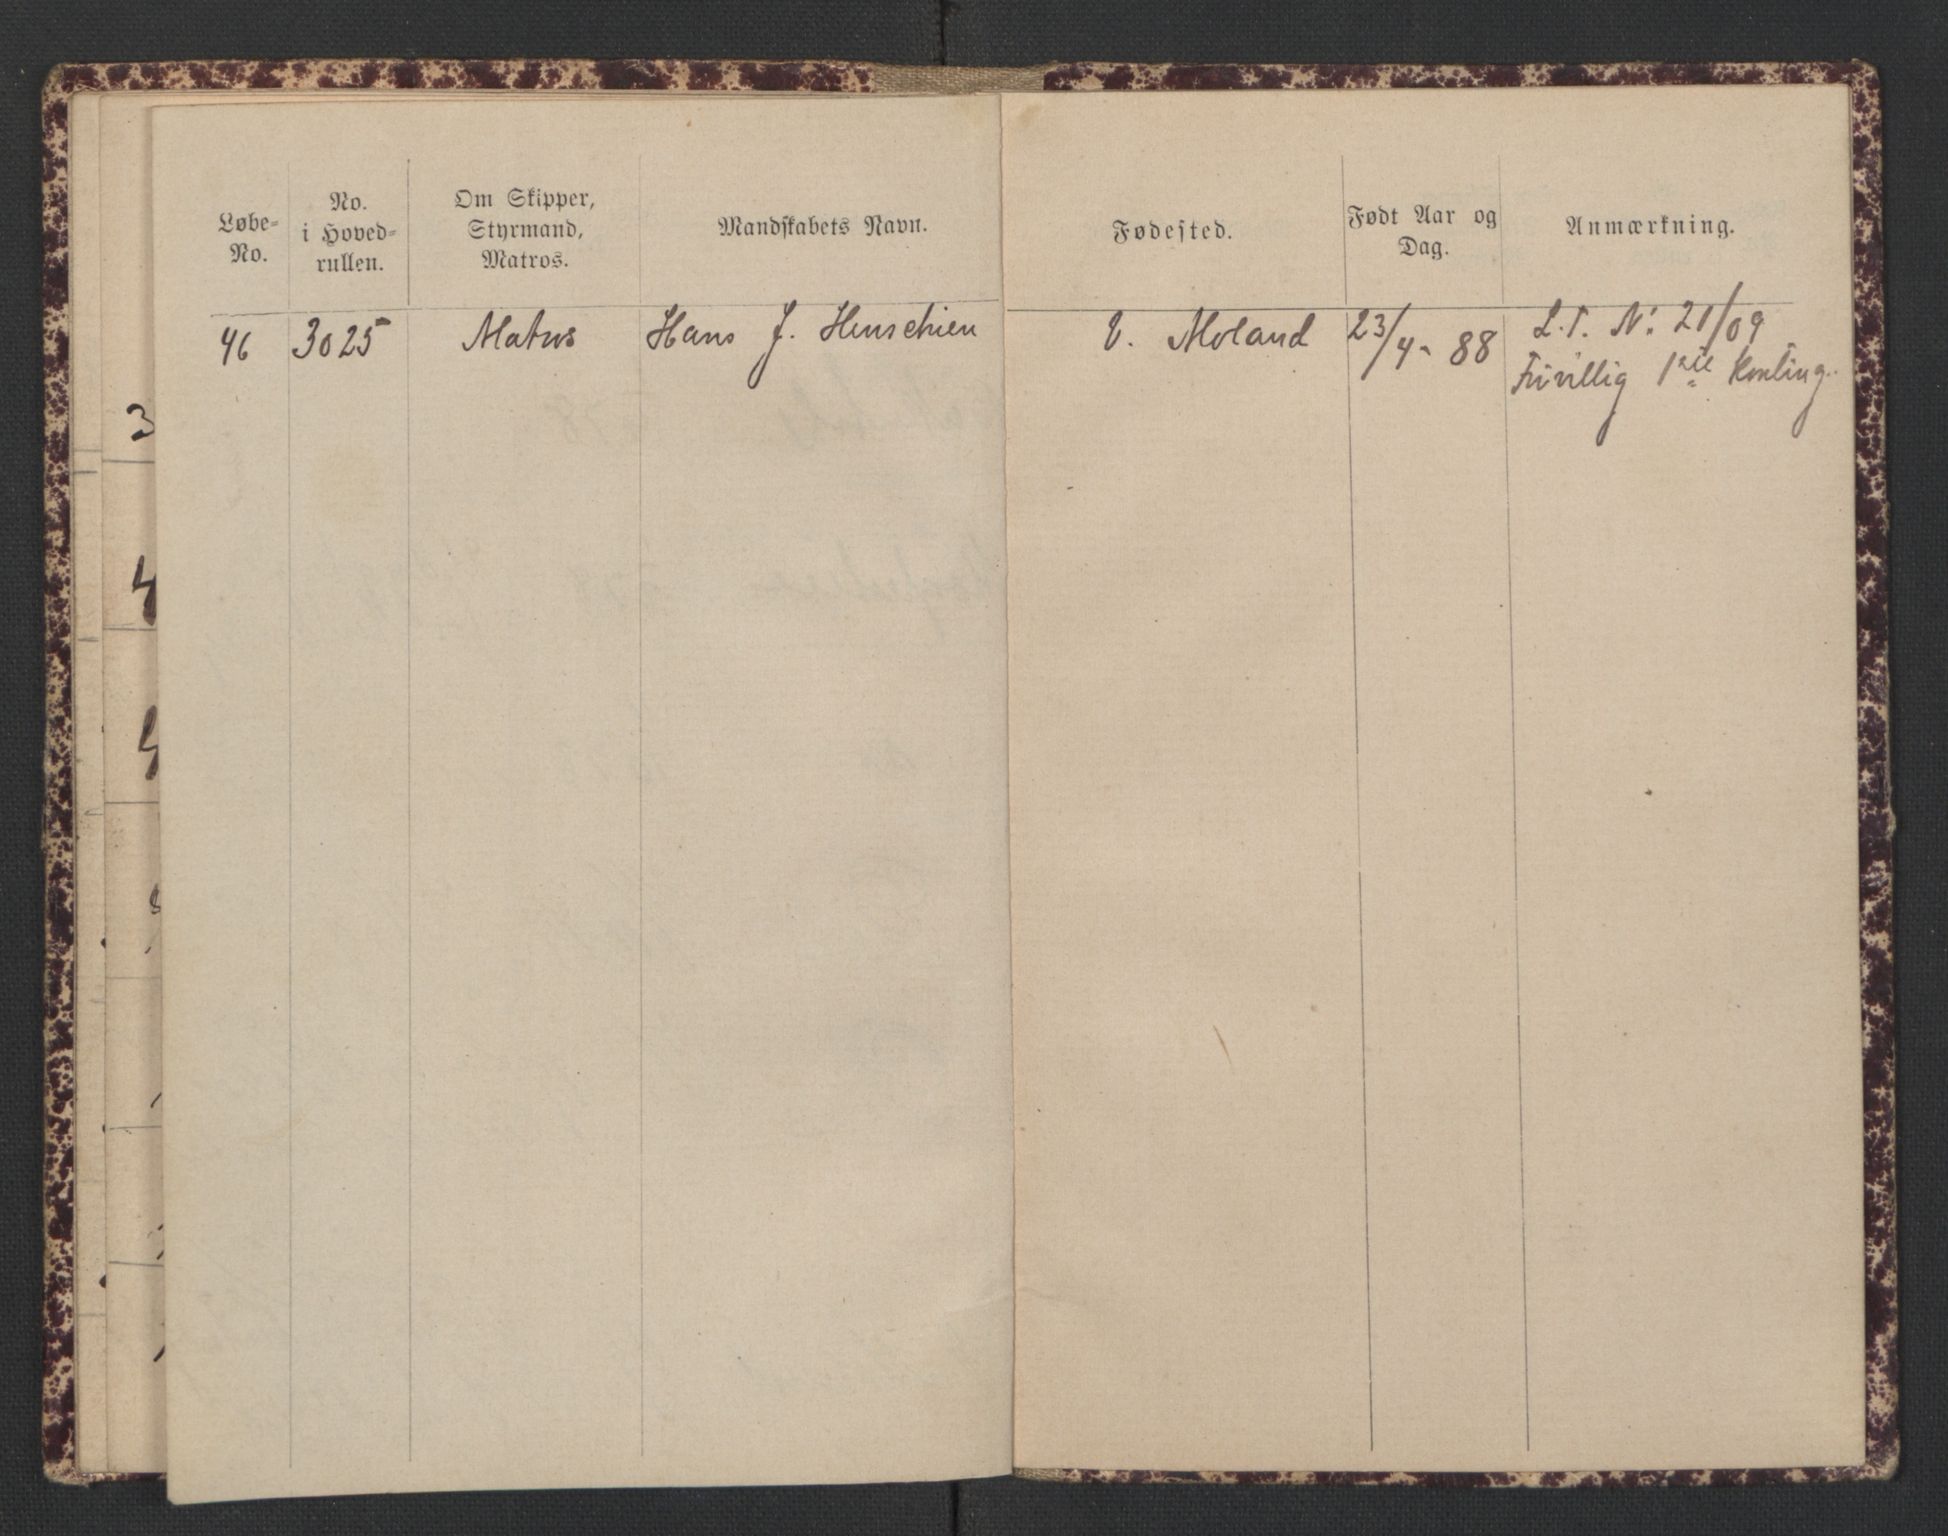 Løbe-
No.
No.
i Hoved-
rullen.
Om Skipper,
Styrmand,
Matros.
Mandskabets Navn.
Fødested.
Født Aar og
Dag.
Anmærkning.
46 3025 Matros Hans J. Henschien Ø. Moland 23/4- 88 L.T. N: 21/09
Frivillig
3
4